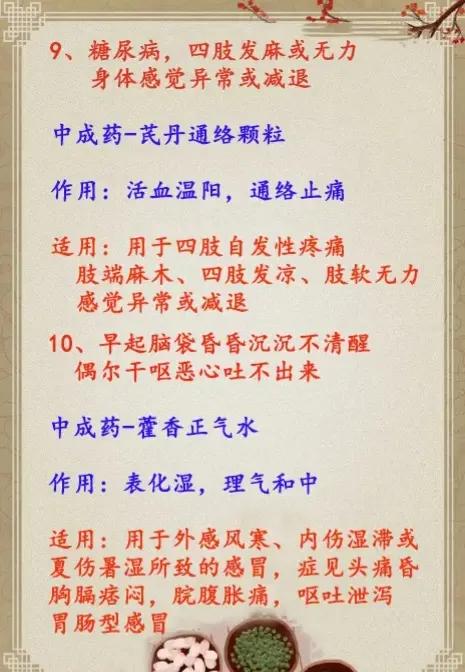 9、糖尿病，四肢发麻或无力
身体感觉异常或减退
中成药-芪丹通络颗粒
作用：活血温阳，通络止痛
适用：用于四肢自发性疼痛
肢端麻木、四肢发凉、肢软无力
感觉异常或减退
10、早起脑袋昏昏沉沉不清醒
偶尔干呕恶心吐不出来
中成药-藿香正气水
作用：表化湿，理气和中
适用：用于外感风寒、内伤湿滞或
夏伤暑湿所致的感冒，症见头痛昏
胸膈痞闷，脘腹胀痛，呕吐泄泻
胃肠型感冒